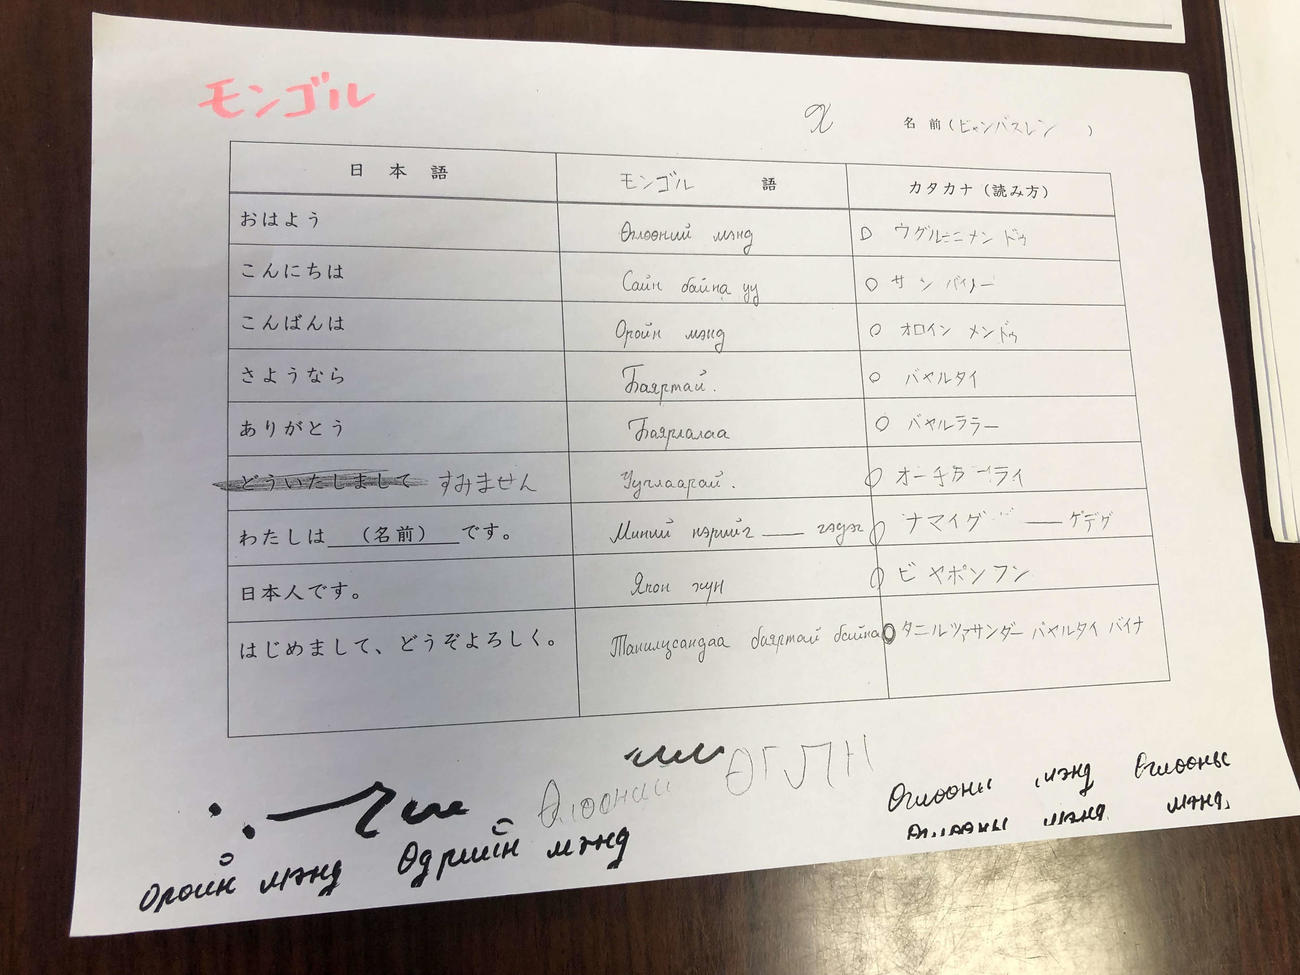 モンゴル
名前（ビャンバスレン　）
日本語　モンゴル　語　カタカナ（読み方）
おはよう　Өглөөний мэнд　ウグルーニメンドゥ
こんにちは　Сайн байна уу　サンバイノー
こんばんは　Оройн мэнд　オロイン メンドゥ
さようなら　Баяртай.　バヤルタイ
ありがとう　Баярлалаа　バヤルララー
どういたしまして すみません　Уучлаарай.　オーチラーライ
わたしは （名前） です。　Миний нэрийг ___ гэдэг　ナマイグ ___ ゲデグ
日本人です。　Япон хүн　ビ ヤポンフン
はじめまして、どうぞよろしく。　Танилцсандаа баяртай байна　タニルツァサンダー バヤルタイ バイナ
Өглөөний
Өглөөний мэнд Өглөөны
Өглөөны мэнд. мэнд.
Оройн мэнд Өдрийн мэнд